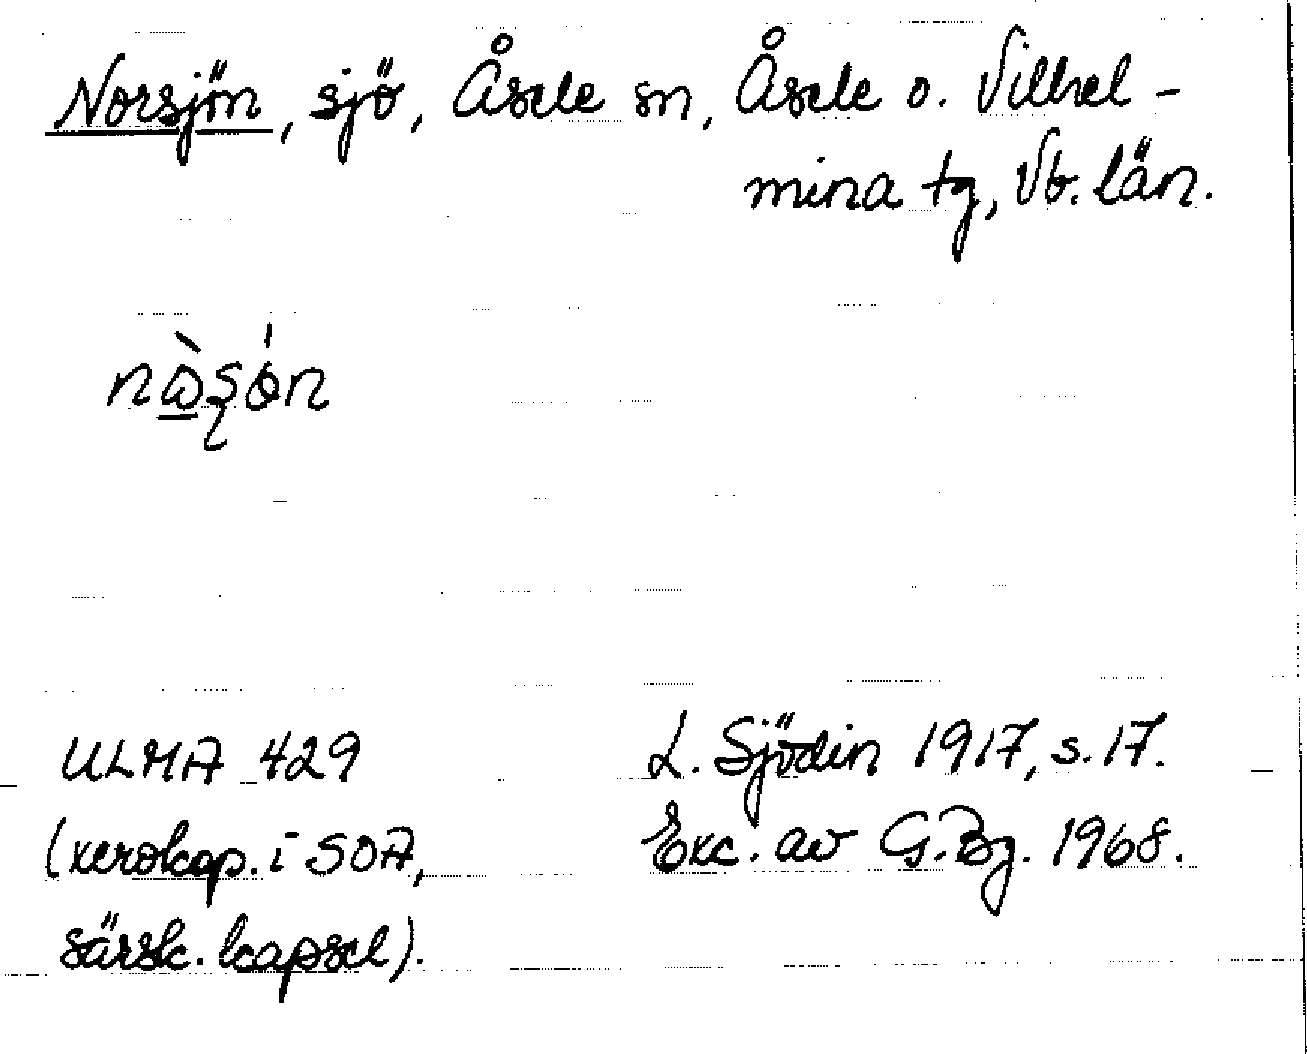 Norsjön, sjö, Åsele sn, Åsele o. Vilhel-
mina tg, Vb. län.
ULMA 429
(xerokop. i SOA,
särsk. kapsel).
L. Sjödin 1917, s. 17.
Exc. av G. Bg. 1968.